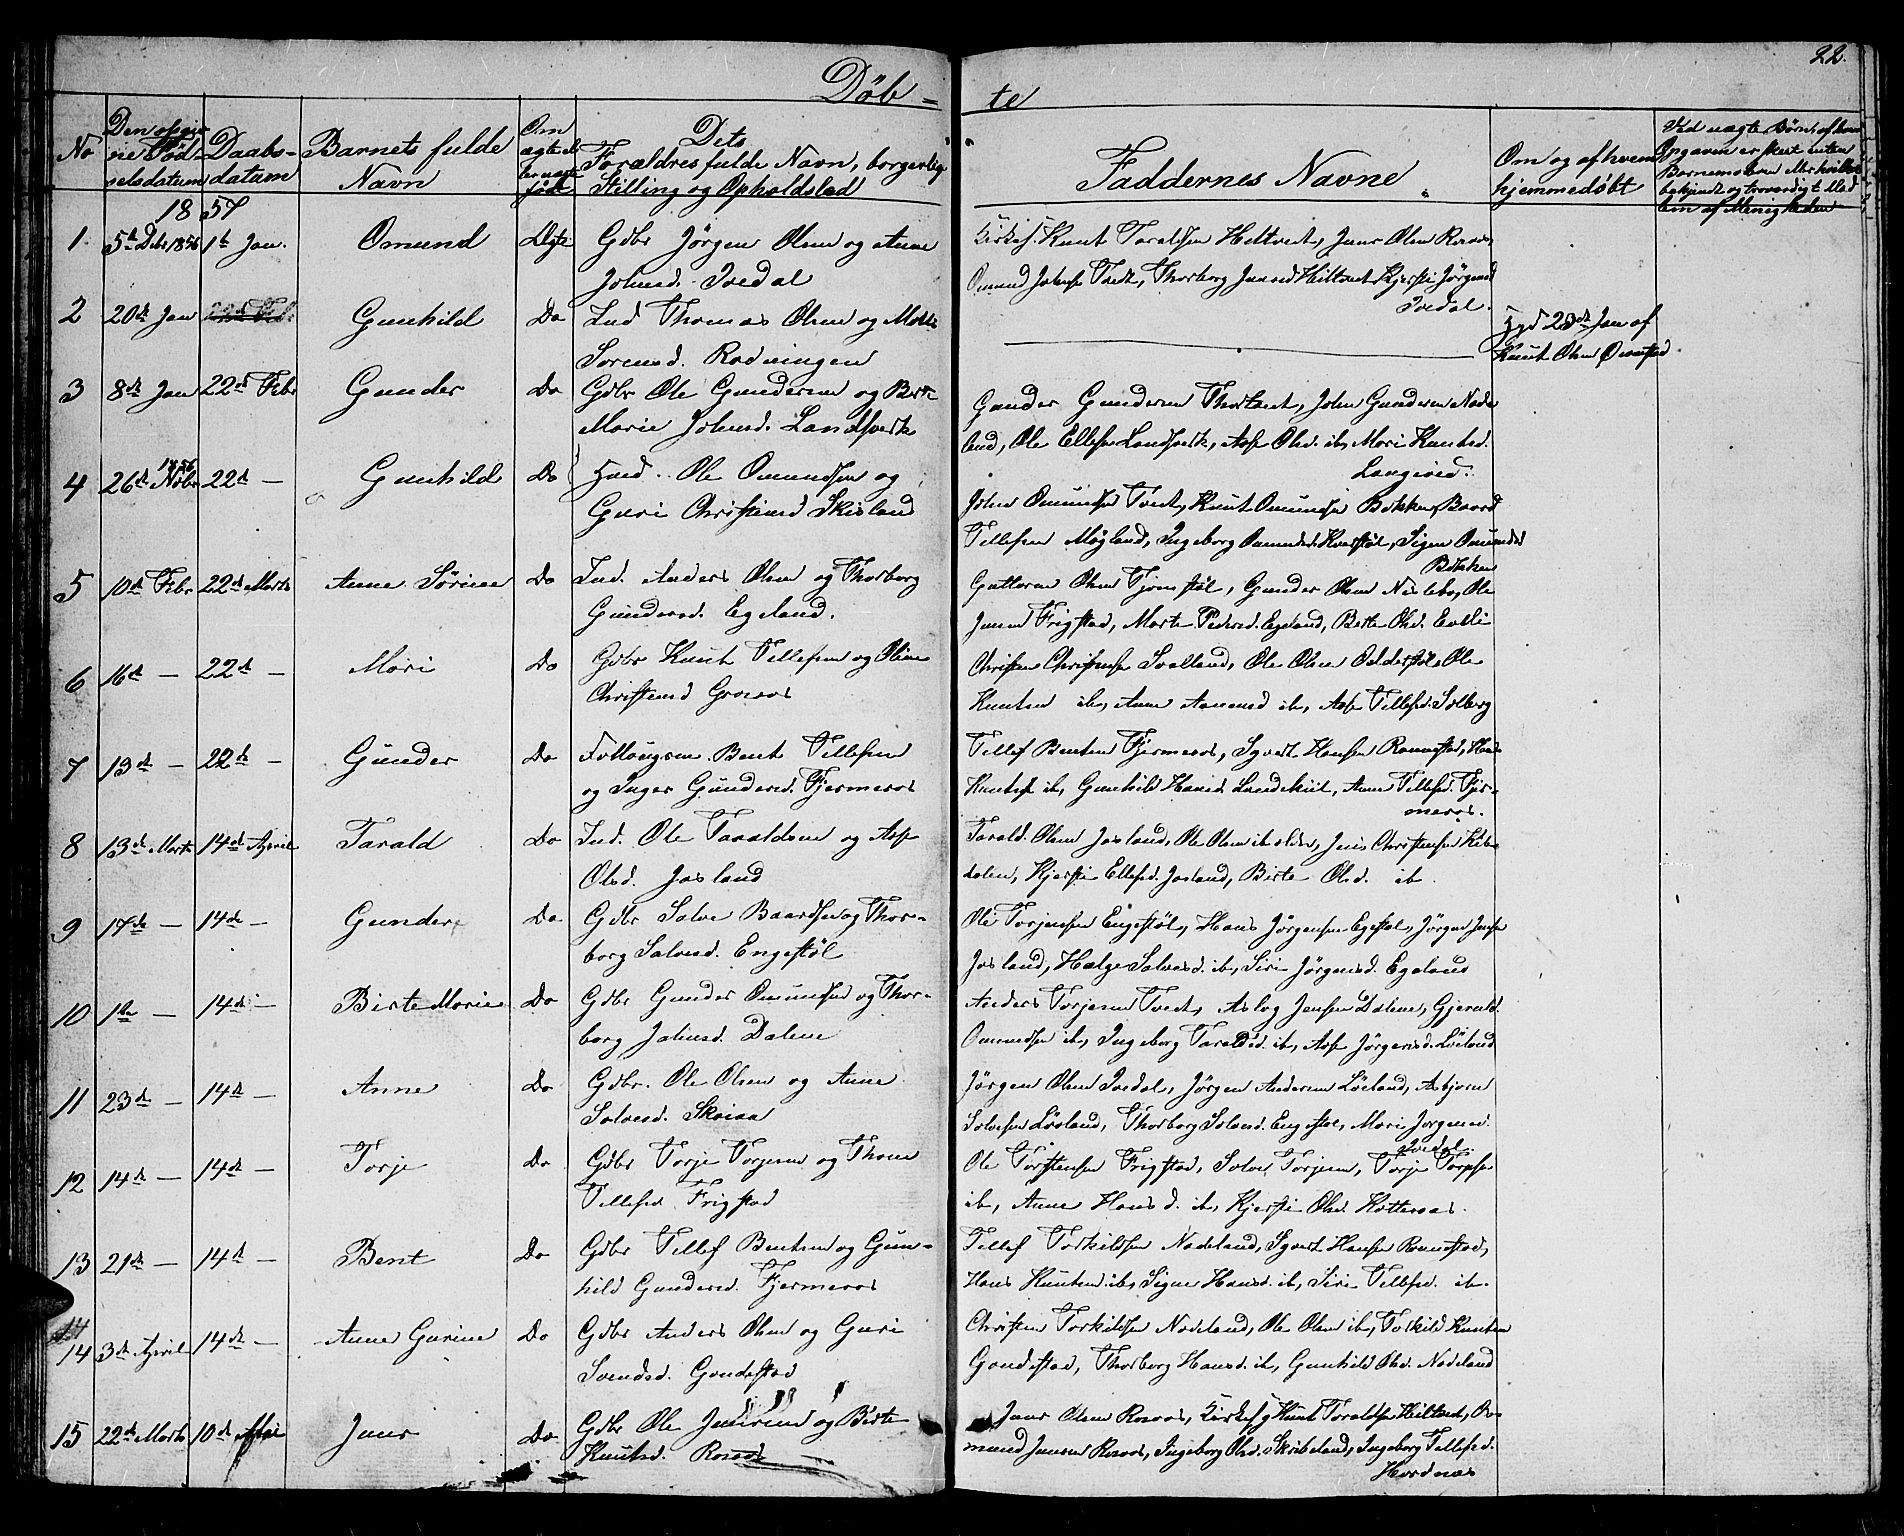 22.
Døb = te
No
Den opgiv
ne Fød-
selsdatum
Daabs-
datum
Barnets fulde
Navn
Om
ægte el
født
Dets
Forældres fulde Navn, borgerlig
Stilling og Opholdsted
Faddernes Navne
Om og af hvem
hjemmedøbt
Ved uægte Børn, af hvem
Opgaven er skeet enten
bekjendt og troværdigt Med
lem af Menigheden
1857
1 5te Debr 1856 1te Jan. Omund Ægte Gdbr Jørgen Olsen og Anne
Johnsd. Ivedal
Kirkes. Knut Taraldsen Heltvedt, Jens Olsen Rosaas,
Omund Johnsen Tvedt, Thorborg Jensd Hiltvedt Kjersti Jørgensd
Ivedal.
2 20de Jan Gunhild Do Ind Thomas Olsen og
Sorensd. Rodningen
Jan af
Knut Olsen
3 8de Jan 22de Febr Gunder Do Gdbr Ole Gundersen og Berte
Marie Johnsd. Landsverk
Gunder Gundersen John Gundersen Node
land, Ole Ellefsen Landsverk, Aase Olsd. ib, Mari Knutsd.
Langeved.
4 26de Nobr 1856 22de — Gunhild Do Husd. Ole Omundsen og
Guri Christensd Skisland
John Omundsen Tvedt, Knut Omundsen Bakken, Baard
Tellefsen Møgland, Ingeborg Omundsd. Signe Omundsd
Bakken
5 10de Febr 22de Marts Anne Sørine Do Ind. Anders Olsen og Thorborg
Gundersd. Egeland.
Guttorm Olsen Tjomstøl, Gunder Olsen Ole
Jensen Frigstad, Marte Pedersd. Egeland, Berte Olsd.
6 16de — 22de — Mari Do Gdbr Knut Tellefsen og Oline
Christensd Grosaas
Christen Christensen Ole Olsen Ole
Knutsen ib, Anne Aanensd ib, Aase Tellefsd. Solberg
7 13de — 22de — Gunder Do Bent Tellefsen
og Inger Gundersd. Fjermeros
Tellef Bentsen Fjermeros, Syvert Hansen Ronnestad,
Knutsd ib, Gunhild Hansd Anne Tellefsd. Fjer-
meros.
8 13de Marts 14de April Tarald Do Ind. Ole Taraldsen og Aase
Olsd. Josland
Tarald Olsen Josland, Ole Olsen ib ældre, Jens Christensen
dalen, Kjersti Ellefsd. Josland, Birte Olsd. ib
9 17de — 14de — Gunder Do Gdbr Salve Baardsen og Thor-
borg Salvesd. Engestøl
Ole Torjensen Engestøl, Hans Jørgensen Jørgen Jensen
Josland, Hælge Salvesd. ib, Siri Jørgensd. Egeland
10 1te — 14de — Birte Marie Do Gdbr Gunder Omundsen og Thor-
borg Johnsd. Dalene
Anders Torjesen Tvedt, Aslag Jensen Dalene, Gjeruld
Omundsen ib, Ingeborg Taraldsd. ib, Aase Jørgensd. Løiland
11 23de — 14de — Anne Do Gdbr. Ole Olsen og Anne
Salvesd. Skeiaa
Jørgen Olsen Ivedal, Jørgen Andersen Løiland, Asbjørn
Salvesen Løiland, Thorborg Salvesd. Engestøl, Mari Jorgensd.
Ivedal.
12 14de — 14de — Torje Do Gdbr Torje Torjesen og Thone
Tellefsd Frigstad
Ole Torstensen Frigstad, Salve Torjesen, Torje
ib, Anne Hansd. ib, Kjersti Olsd.
13 21de — 14de — Bent Do Gdbr Tellef Bentsen og Gun-
hild Gundersd. Fjermeros
Tellef Torkildsen Nodeland, Syvert Hansen Ronnestad,
Hans Knutsen ib, Signe Hansd. ib, Siri Tellefsd. ib.
14 3de April 14de — Anne Gurine Do Gdbr Anders Olsen og Guri
Svendsd. Gondestad
Christen Torkildsen Nodeland, Ole Olsen ib, Torkild Knutsen
Gondestad, Thorborg Hansd. ib, Gunhild Olsd. Nodeland
15 22de Marts 10de Mai Jens Do Gdbr Ole Jensen og Birte
Knutsd. Rosaas
Jens Olsen Rosaas, Kirkes. Knut Taraldsen Hiltvedt, O-
mund Jensen Rosaas, Ingeborg Olsd. Skibeland, Ingeborg Tellefsd.
Hordnæs